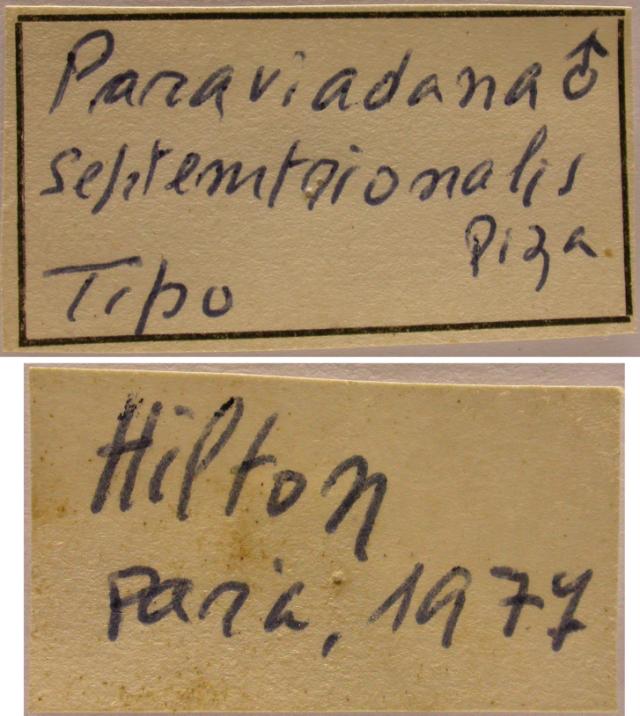 Paraviadana ♂
septemtrionalis
Piza
Tipo
Hilton
Pará, 1977